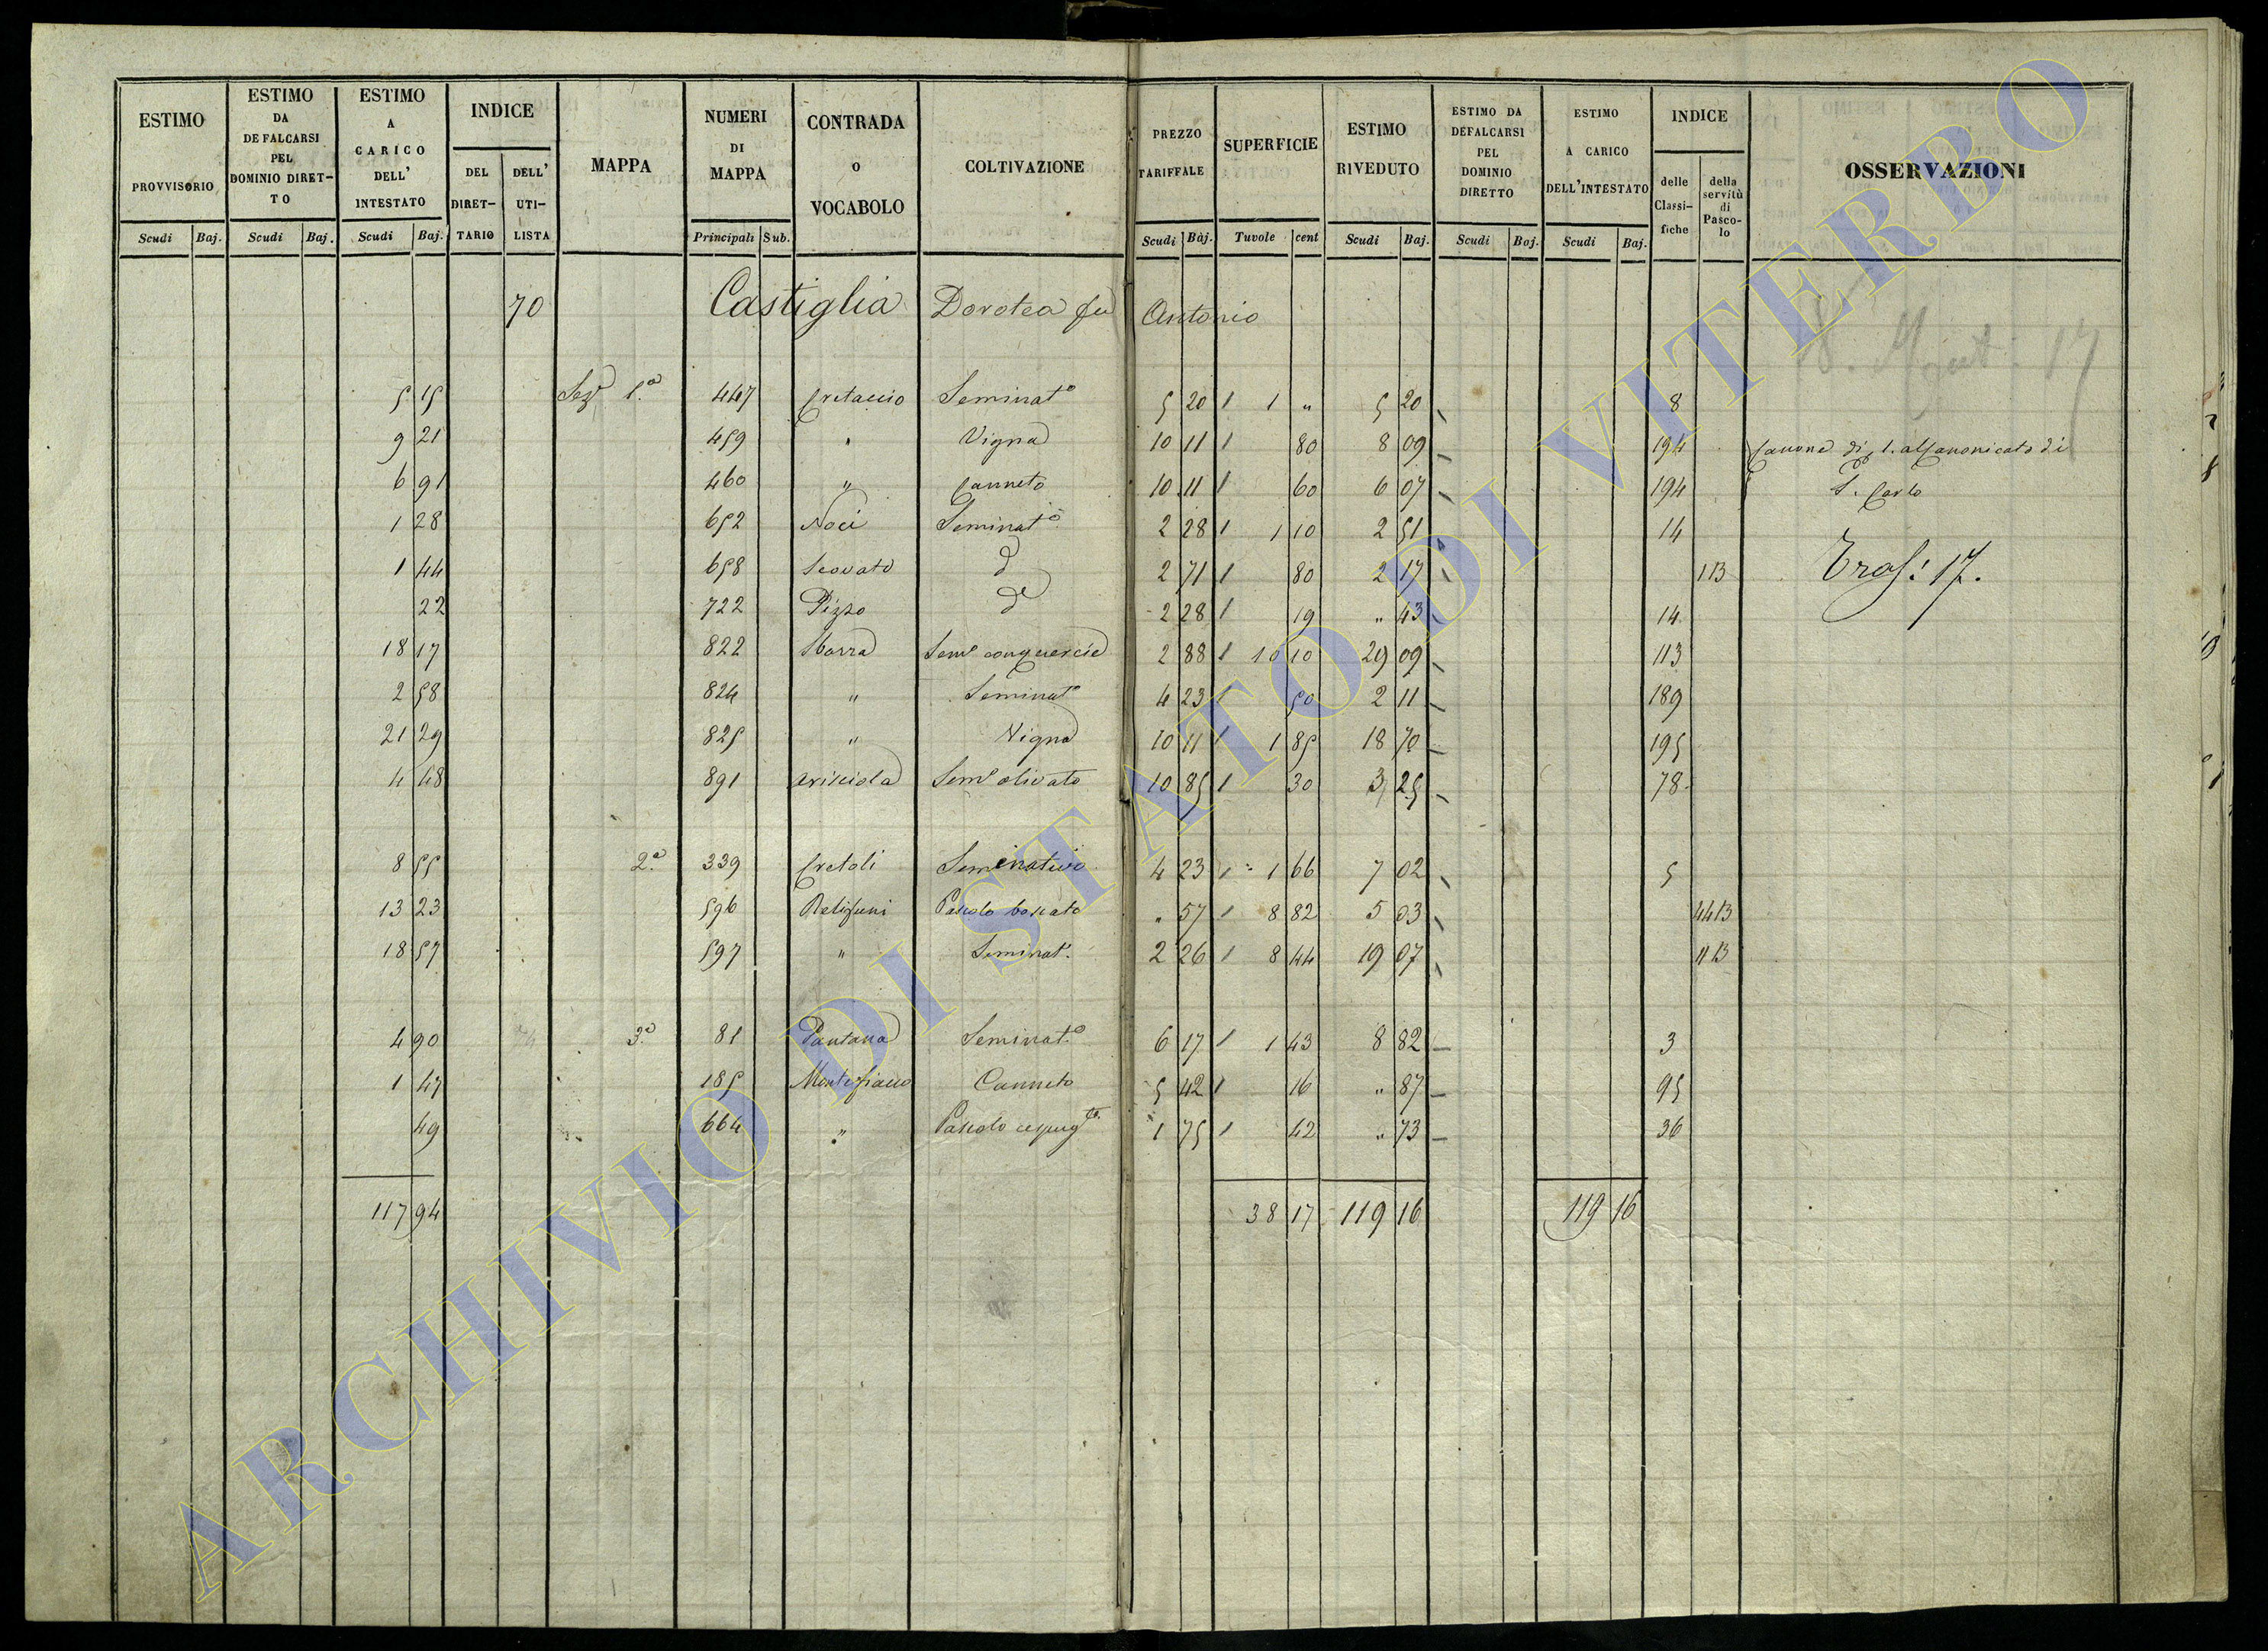 ESTIMO PROVVISORIO Scudi Baj.
ESTIMO DA DEFALCARSI PEL DOMINIO DIRET-TO Scudi Baj.
ESTIMO A CARICO DELL' INTESTATO Scudi Baj.
INDICE DEL DIRET-TARIO DELL' UTI-LISTA
MAPPA
NUMERI DI MAPPA Principali Sub.
CONTRADA O VOCABOLO
COLTIVAZIONE
PREZZO TARIFFALE Scudi Baj.
SUPERFICIE Tavole cent
ESTIMO RIVEDUTO Scudi Baj.
ESTIMO DA DEFALCARSI PEL DOMINIO DIRETTO Scudi Baj.
ESTIMO A CARICO DELL'INTESTATO Scudi Baj.
INDICE delle Classi-fiche della servitù di Pasco-lo
OSSERVAZIONI
70 Castiglia Dorotea fu Antonio
17
5 15 Sez. 1.a 447 Cretaccio Seminat.o 5 20 1 1 " 5 20 8
9 21 459 " Vigna 10 11 1 80 8 09 194 Canone di 1. al Canonicato di
6 91 460 " Canneto 10 11 1 60 6 07 194 S. Carlo
1 28 652 Noci Seminat.o 2 28 1 1 10 2 51 14
1 44 658 Scovato d 2 71 1 80 2 17 113 Trasf: 17.
22 722 Pizzo d 2 28 1 19 " 43 14
18 17 822 Sbarra Sem.o con quercie 2 88 1 10 10 29 09 113
2 58 824 " Seminat.o 4 23 1 50 2 11 189
21 29 825 " Vigna 10 11 1 1 85 18 70 195
4 48 891 Arisciola Sem.o olivato 10 85 1 30 3 25 78
8 55 2.a 339 Cretoli Seminativo 4 23 1 1 66 7 02 5
13 23 596 Relifuni Pascolo boscato " 57 1 8 82 5 03 4413
18 57 597 " Seminat. 2 26 1 8 44 19 07 1113
4 90 3.a 81 Pantana Seminat.o 6 17 1 1 43 8 82 3
1 47 185 Canneto 5 42 1 16 " 87 95
49 664 " Pascolo cespug.to 1 75 1 42 " 73 36
117 94 38 17 119 16 119 16
ARCHIVIO DI STATO DI VITERBO